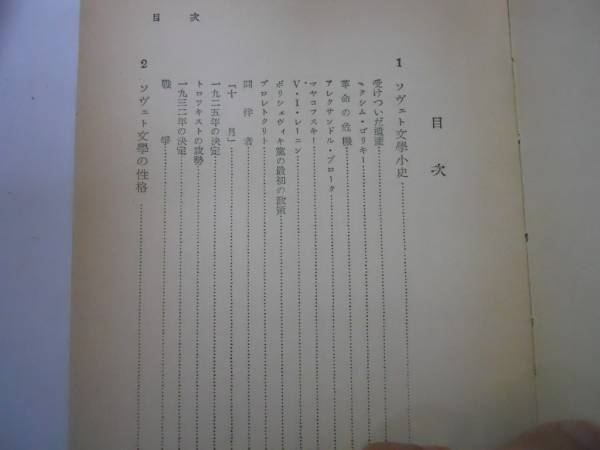 目次
目次
1 ソヴェト文學小史
受けついだ遺産
マクシム・ゴリキー
革命の危機
アレクサンドル・ブローク
マヤコフスキー
V・I・レーニン
ボリシェヴィキ黨の最初の政策
プロレトクリト
同伴者
「十月」
一九二五年の決定
トロツキストの攻勢
一九三二年の決定
戰爭
2 ソヴェト文學の性格